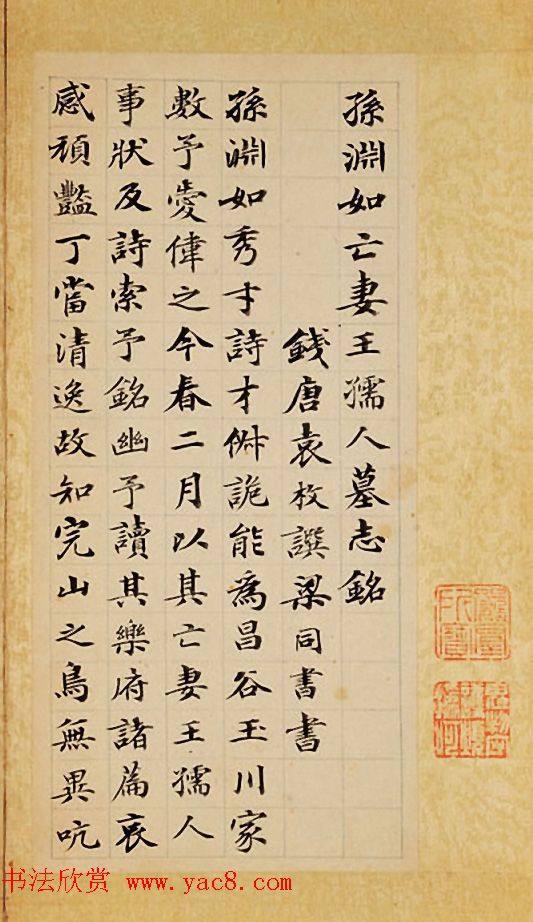 孫淵如亡妻王孺人墓志銘
錢唐袁枚譔梁同書書
孫淵如秀才詩才俶詭能爲昌谷玉川家
數予愛偉之今春二月以其亡妻王孺人
事狀及詩索予銘幽予讀其樂府諸篇哀
感頑豔丁當清逸故知完山之鳥無異吭
书法欣赏 www.yac8.com